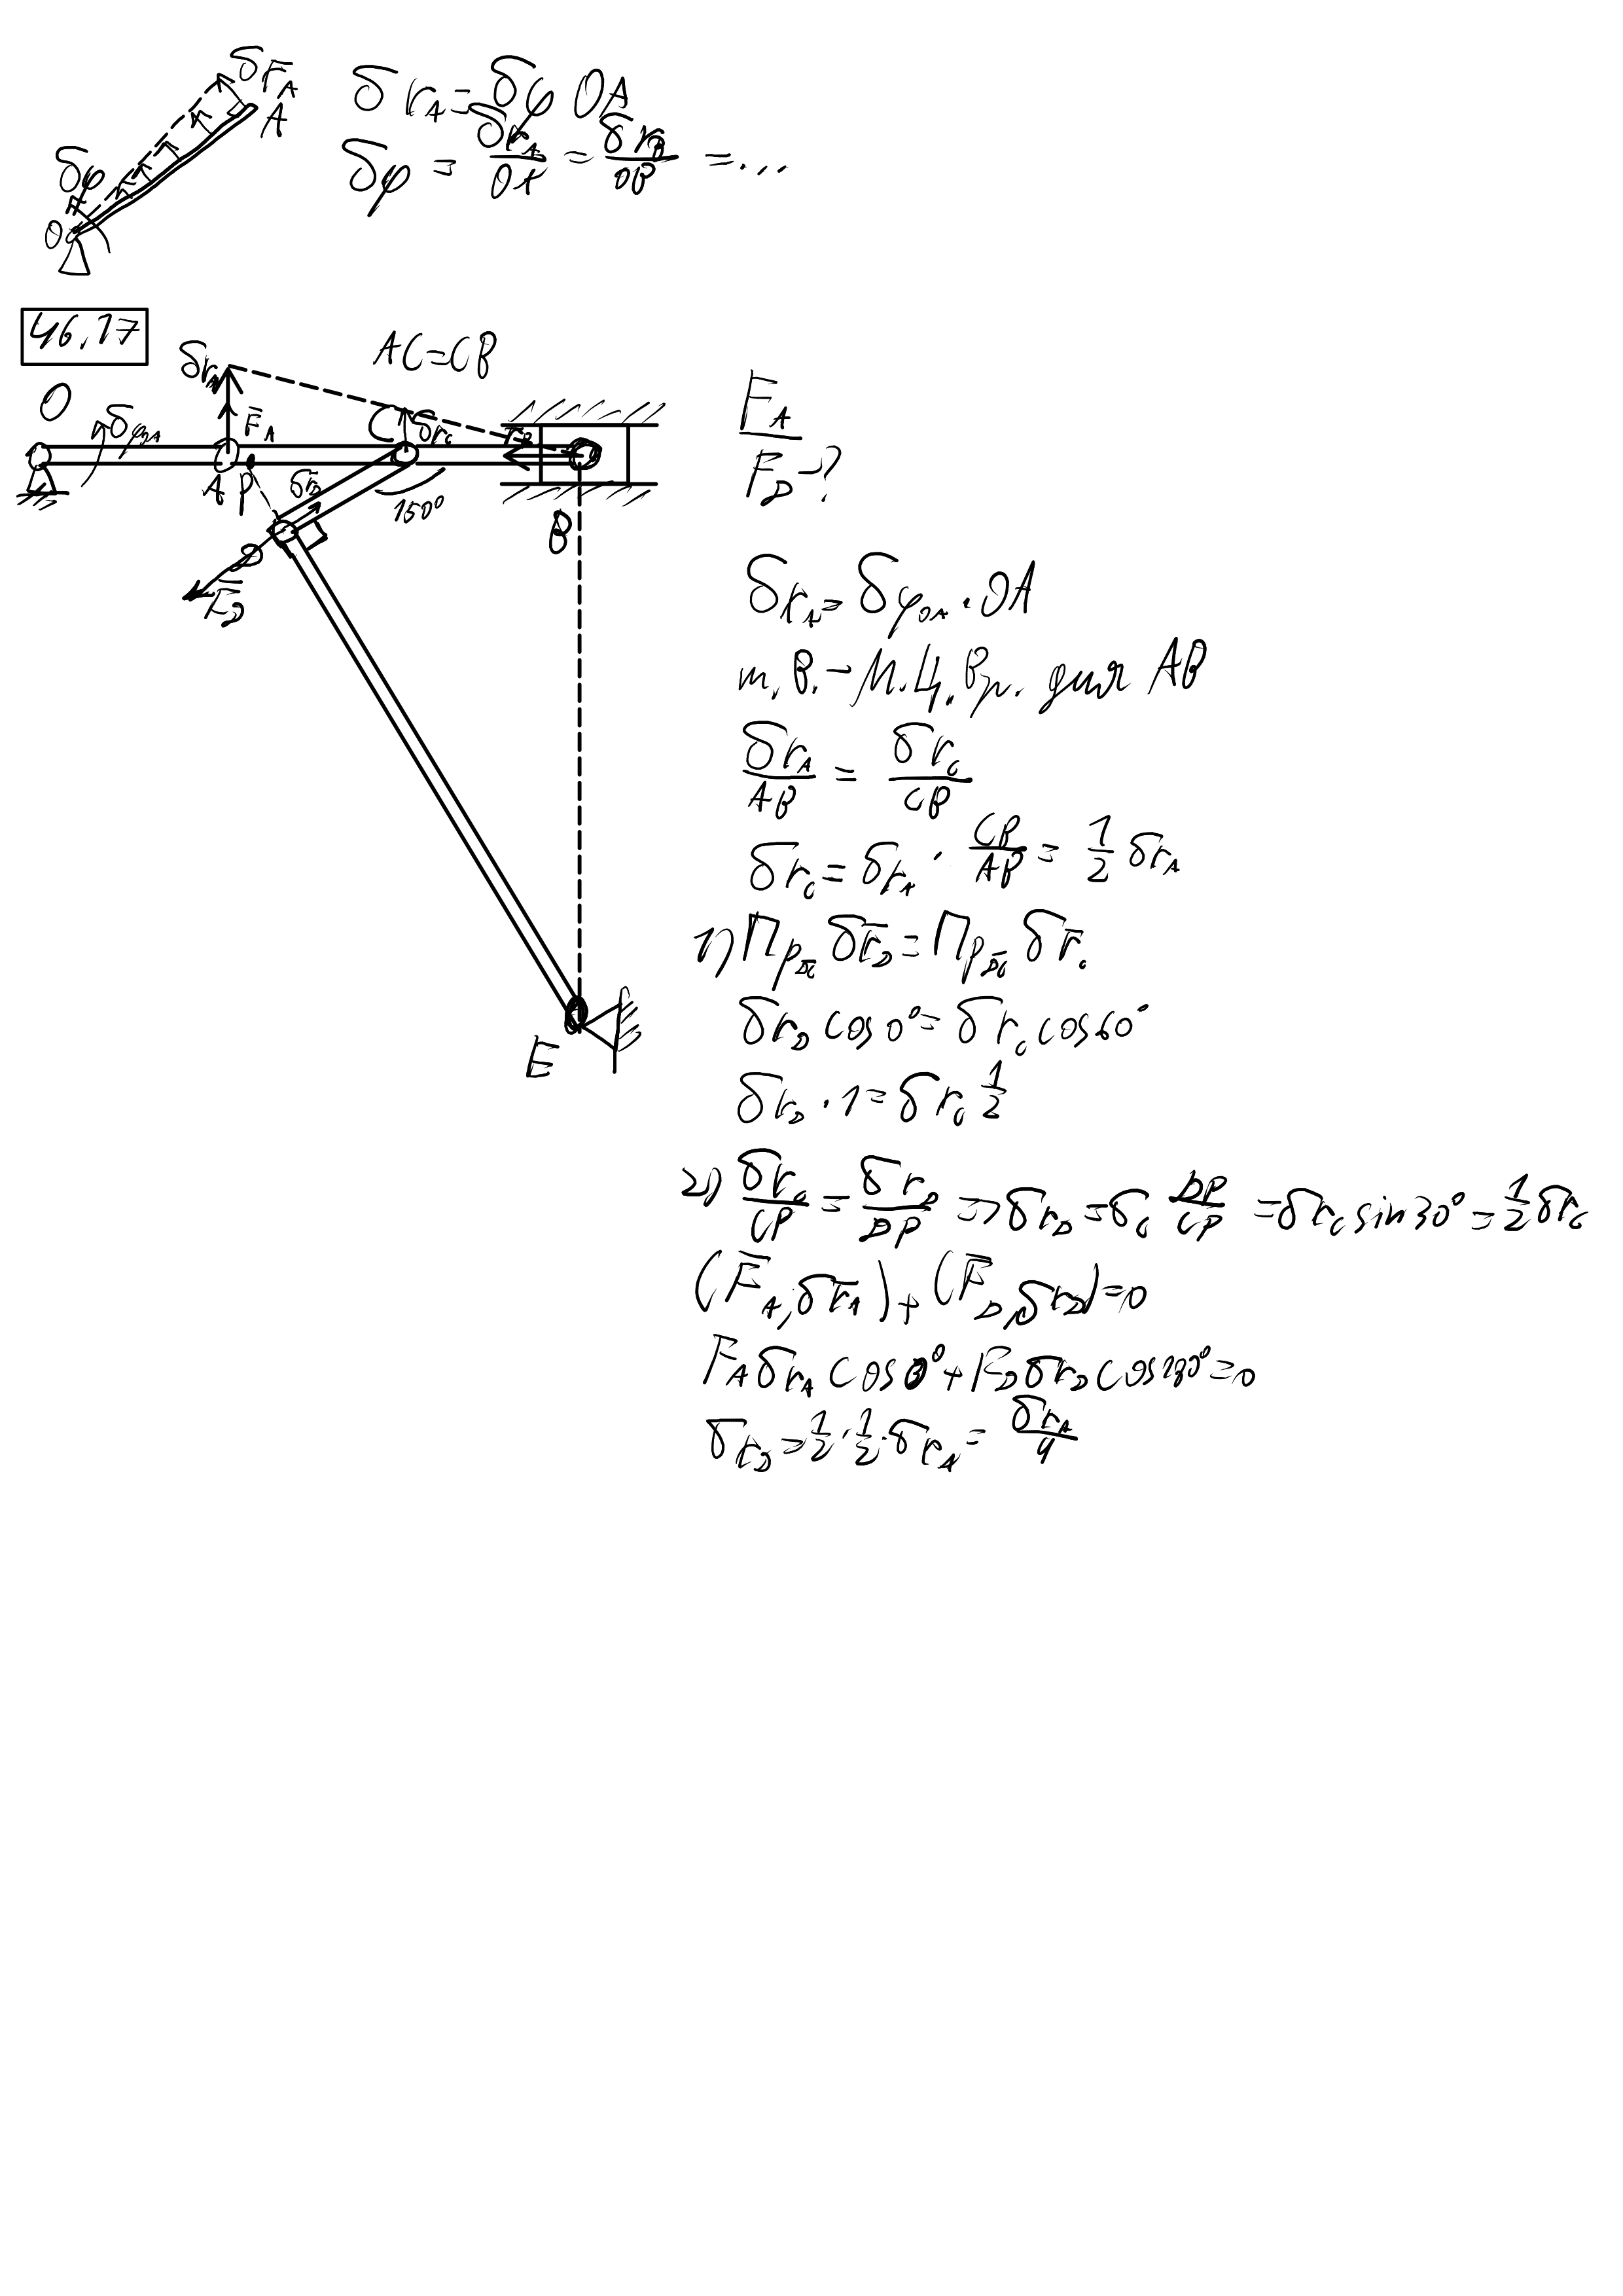 δr̄_A
A
δφ
O
δr_A = δφ OA
δφ = δr_A/OA = δr_B/OB = ...
46.17
AC=CB
δr_A
O
δφ_OA
F̄_A
C
δr_C
A
P
δr̄_D
150°
B
D
F̄_D
E
F_A/F_D - ?
δr_A = δφ_OA · OA
т. В. – М.Ц.Вр. для AB
δr_A/AB = δr_C/CB
δr_C = δr_A · CB/AB = 1/2 δr_A
1) Пр_DC δr̄_D = Пр_DC δr̄_C
δr_D cos 0° = δr_C cos 60°
δr_D · 1 = δr_C 1/2
2) δr_C/CP = δr_D/DP => δr_D = δ_C DP/CP = δr_C sin 30° = 1/2 δr_C
(F̄_A, δr̄_A) + (F̄_D, δr̄_D) = 0
F_A δr_A cos 0° + F_D δr_D cos 180° = 0
δr_D = 1/2 · 1/2 · δr_A = δr_A/4